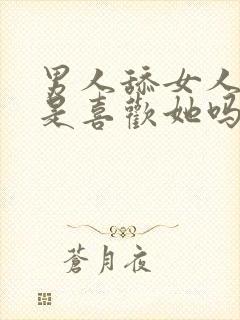 男人舔女人
是喜歡她吗
蒼月夜